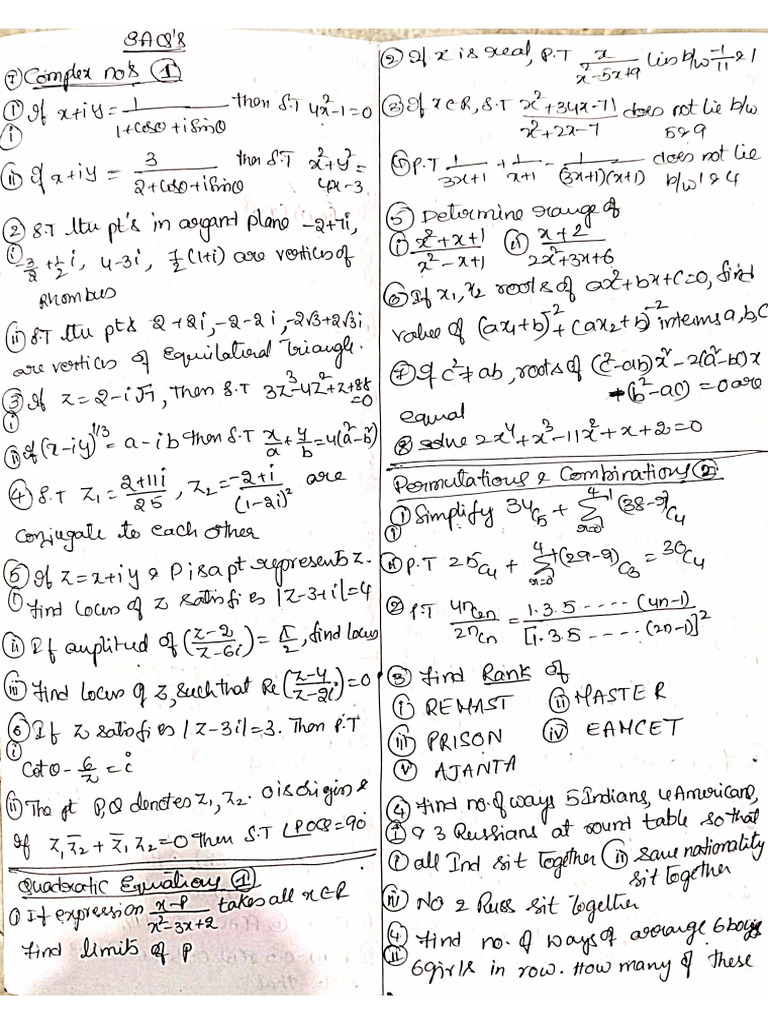 SAQ'S
I Complex no's ①
① If x+iy = 1/(1+cosθ+isinθ) then S.T 4x²-1=0
i
ii If x+iy = 3/(2+cosθ+isinθ) then S.T x²+y²=4x-3
② S.T the pt's in argand plane -2+7i,
i -3/2+1/2 i, 4-3i, 7/2(1+i) are vertices of
Rhombus
ii S.T the pts 2+2i, -2-2i, -2√3+2√3i
are vertices of Equilateral Triangle.
③ If z=2-i√7, then S.T 3z³-4z²+z+88=0
i
ii If (x-iy)^(1/3) = a-ib then S.T x/a+y/b=4(a²-b²)
④ S.T z₁=(2+11i)/25, z₂=(-2+i)/(1-2i)² are
conjugate to each other
⑤ If z=x+iy & P is a pt represents z.
i find locus of z satisfies |z-3+i|=4
ii If amplitud of ((z-2)/(z-6i))=π/2, find locus
iii find locus of z, such that Re((z-4)/(z-2i))=0
⑥ If z satisfies |z-3i|=3. Then P.T
i
Cotθ-6/z=i
ii The pt P,Q denotes z₁,z₂. O is origin &
if z₁z̄₂+z̄₁z₂=0 then S.T ∠POQ=90
Quadratic Equations ①
① If expression (x-p)/(x²-3x+2) takes all x∈R
find limits of p
② If x is real, P.T x/(x²-5x+9) lies b/w -1/11 & 1
③ If x∈R, S.T (x²+34x-71)/(x²+2x-7) does not lie b/w
5 & 9
P.T 1/(3x+1)+1/(x+1)-1/((3x+1)(x+1)) does not lie
b/w 1 & 4
⑤ Determine range of
i (x²+x+1)/(x²-x+1) ii (x+2)/(2x²+3x+6)
⑥ If x₁,x₂ roots of ax²+bx+c=0, find
value of (ax₁+b)⁻²+(ax₂+b)⁻² interms a,b,c
⑦ If c²≠ab, roots of (c²-ab)x²-2(a²-bc)x
+(b²-ac)=0 are
equal
⑧ solve 2x⁴+x³-11x²+x+2=0
Permutations & Combinations ②
① Simplify 34C₅ + Σ(r=0 to 4) (38-r)C₄
i
ii P.T 25C₄ + Σ(r=0 to 4) (29-r)C₃ = 30C₄
② P.T 4nC₂n/2nCn = 1.3.5-----(4n-1)/[1.3.5-----(2n-1)]²
③ find Rank of
i REMAST ii MASTER
iii PRISON iv EAMCET
v AJANTA
④ find no. of ways 5 Indians, 4 Americans,
I & 3 Russians at round table so that
i all Ind sit together ii same nationality
sit together
iii No 2 Russ sit together
④ find no. of ways of arrange 6 boys
ii 6 girls in row. How many of these